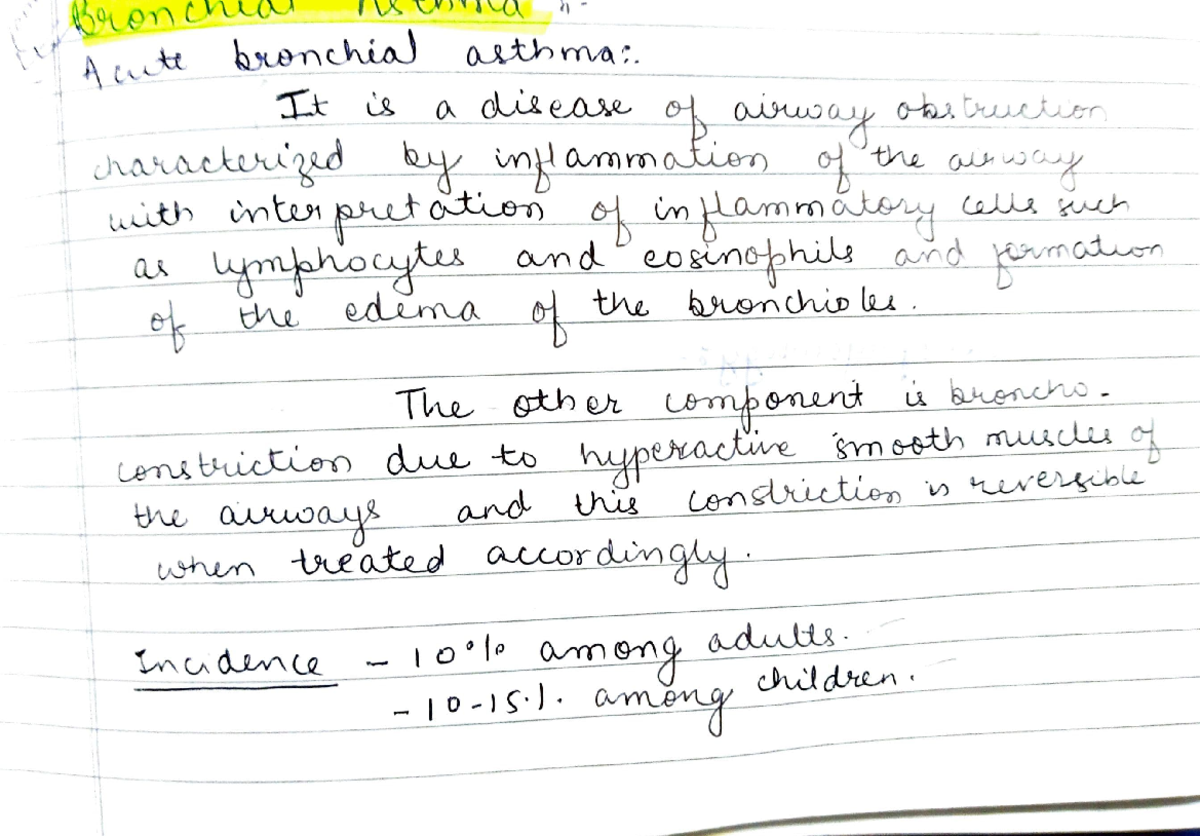 Bronchial Asthma :-
Acute bronchial asthma:.
It is a disease of airway obstruction
characterized by inflammation of the airway
with interpretation of inflammatory cells such
as lymphocytes and eosinophils and formation
of the edema of the bronchioles.
The other component is broncho-
constriction due to hyperactive smooth muscles of
the airways and this constriction is reversible
when treated accordingly.
Incidence - 10% among adults.
- 10-15%. among children.